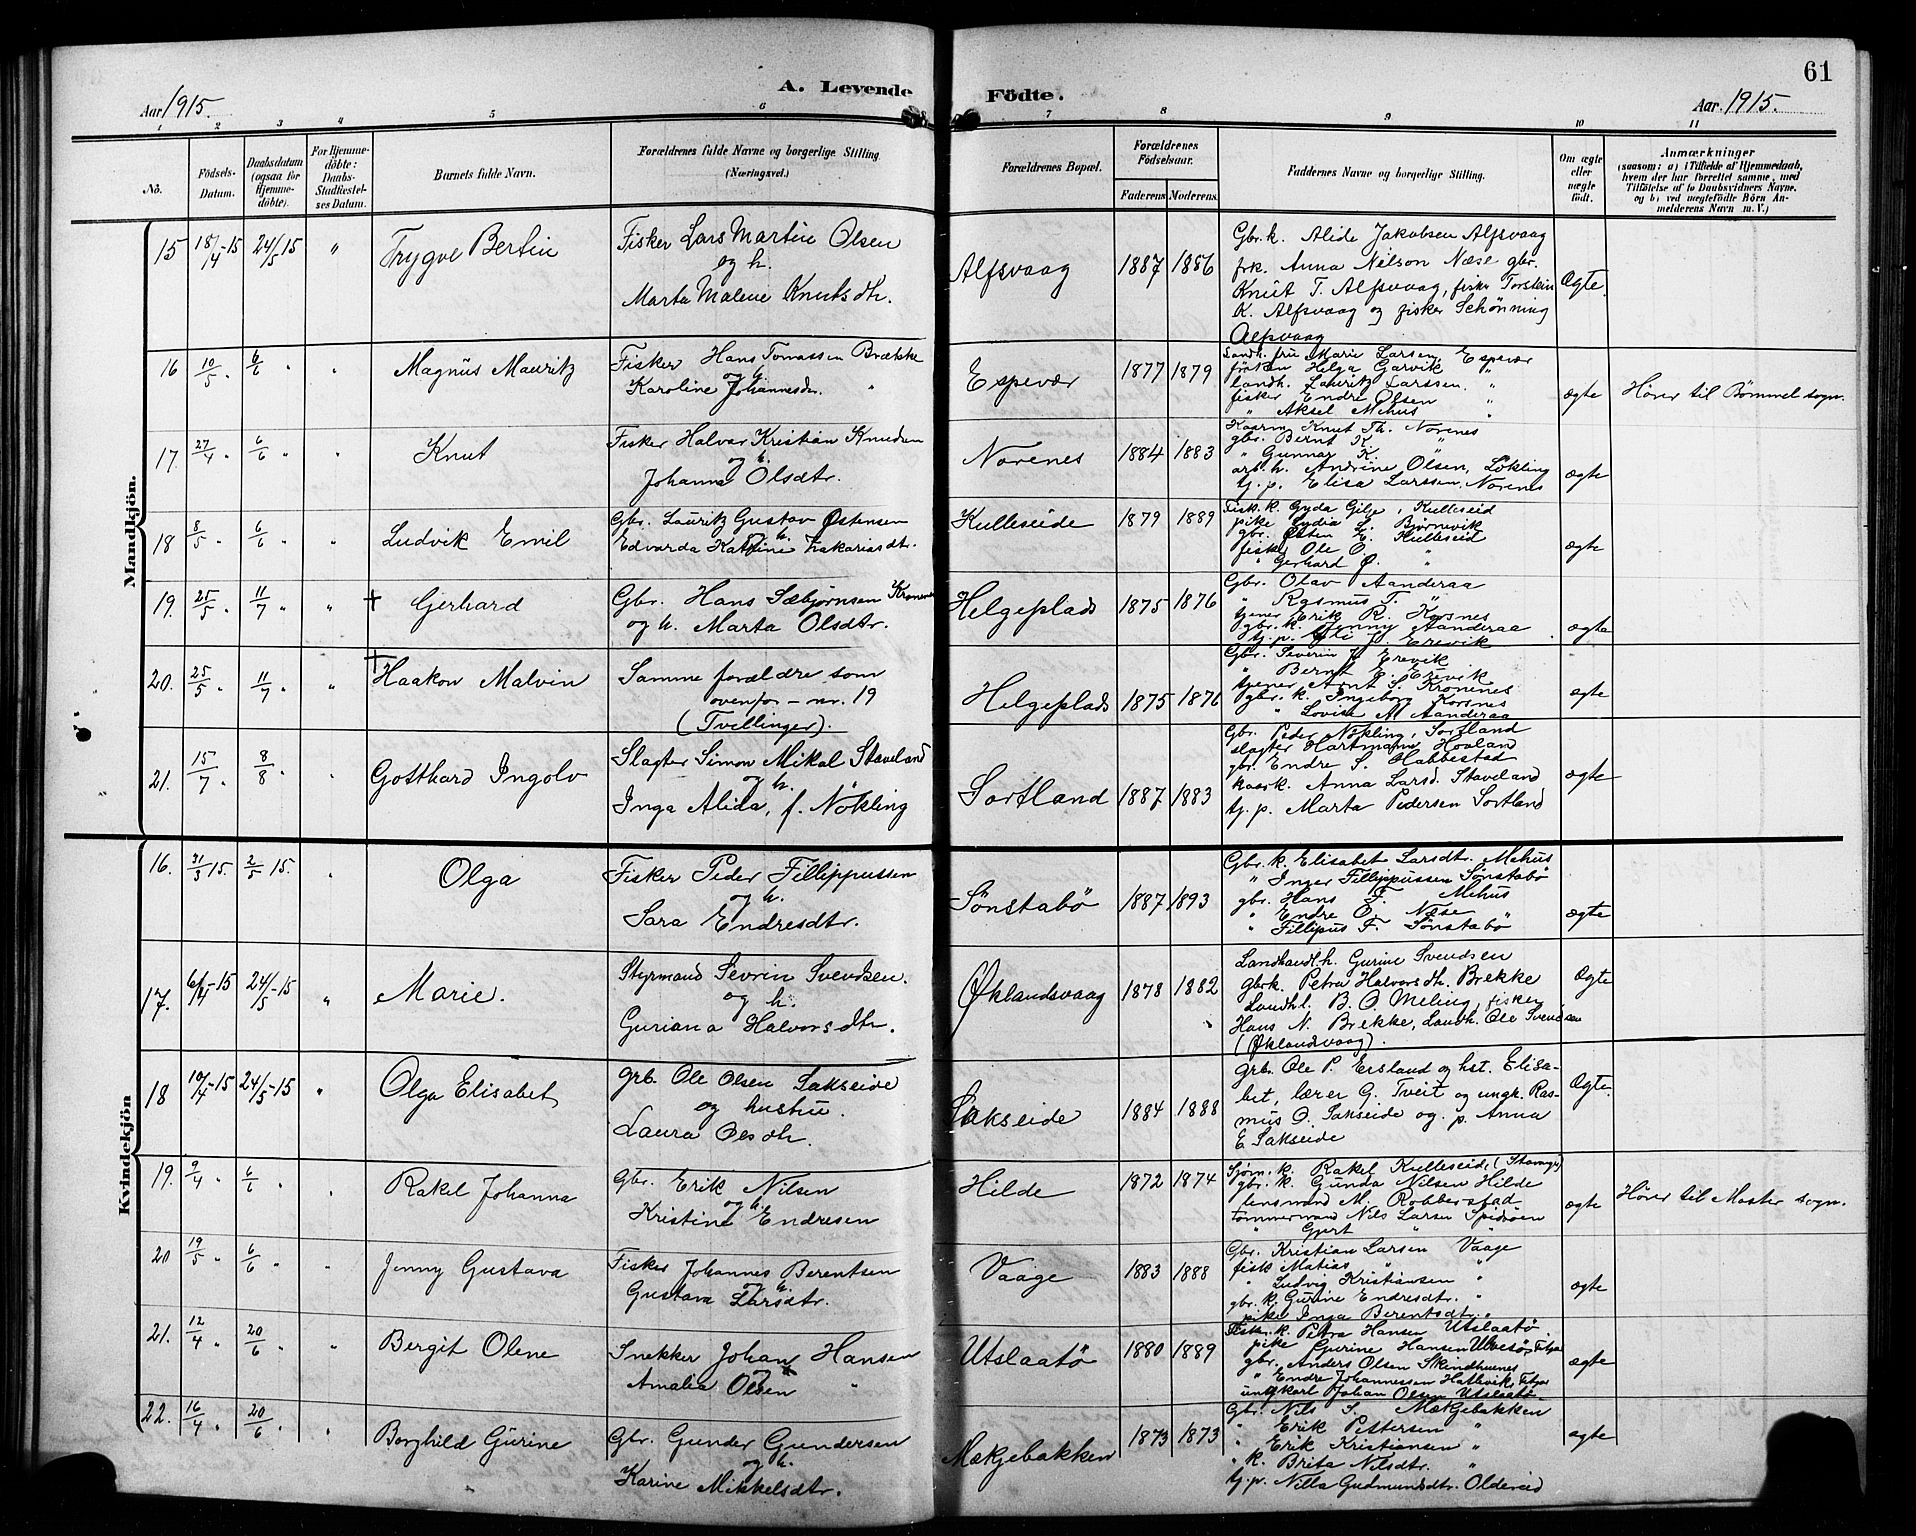 61
A. Levende Födte.
Aar 1915.
Aar. 1915.
1 2 3 4 5 6 7 8 9 10 11
No.
Födsels-Datum.
Daabsdatum (ogsaa for Hjemmedöbte).
For Hjemmedöbte: Daabs-Stadfæstelses Datum.
Barnets fulde Navn.
Forældrenes fulde Navne og borgerlige Stilling. (Næringsvei.)
Forældrenes Bopæl.
Forældrenes Födselsaar.
Faderens
Moderens.
Faddernes Navne og borgerlige Stilling.
Om ægte eller uægte födt.
Anmærkninger
(saasom: a) i Tilfælde af Hjemmedaab,
hvem der har forrettet samme, med
Tilföielse af to Daabsvidners Navne.
og b) ved uægtefödte Börn Anmelderens Navn m. V.)
Mandkjön.
15 18/4-15 24/5 15 " Trygve Bertin
Fisker Lars Martin Olsen
og h.
Marta Malene Knutsdtr.
Alfsvaag 1887 1886
Gbr. k. Alide Jakobsen Alfsvaag
frk. Anna Nilson Næse gbr.
Knut T. Alfsvaag, fisker Torstein
K. Alfsvaag og fisker Schönning
Alfsvaag
Ægte.
16 10/5 " 6/6 " " Magnus Mauritz
Fisker Hans Tomassen Brætske
og h.
Karoline Johannesdtr. "
Espevær 1877 1879
Landh. fru Marie Larsen, Espevær
fröken Helga Garvik "
landh. Lauritz Larssen. "
fisker Endre Olsen "
" Aksel Mehus "
ægte Hörer til Bömmel sogn.
17. 27/4 " 6/6 " " Knut
Fisker Halvar Kristian Knudsen
og h.
Johanna Olsdtr.
Norenes 1884 1883
Kaarm. Knut Th. Norenes
gbr. Bernt K. "
" Gunnar K. "
arb. h. Andrine Olsen, Lökling
tj. p. Elisa Larssen, Norenes
ægte
18 8/5 " 6/6 " " Ludvik Emil
Gbr. Lauritz Gustav Østensen
og h.
Edvarda Katrine Zakariasdtr.
Kulleseide 1879 1889
Fisk. k. Gyda Gilje, Kulleseid
pike Lydia L. Björnevik
gbr. Østen E. Kulleseid
fisker Ole O. "
" Gerhard Ø. "
ægte
19. 25/5 " 11/7 " " † Gerhard
Gbr. Hans Sæbjörnsen Kronenes
og h. Marta Olsdtr.
Helgeplads 1875 1876
Gbr. Olav Aanderaa
" Rasmus T. "
tjener Erik R. Korsnes
gbr. k. Jenny Aanderaa
tj. p. J. Erevik
ægte
20. 25/5 " 11/7 " " † Haakon Malvin
Samme forældre som
ovenfor – nr. 19
(Tvillinger).
Helgeplads 1875 1876
Gbr. Severin J. Erevik
" Bernt E. Erevik
tjener Arnt S. Kronenes
gbr. k. Ingeborg Korsnes
" Lovise M Aanderaa
ægte
21. 15/7 " 8/8 " " Gotthard Ingolv
Slagter Simon Mikal Staveland
og h.
Inga Alida, f. Nökling
Sortland 1887 1883
Gbr. Peder Nökling, Sortland
slagter Hartmann Hovland
gbr. Endre S. Habbestad
kaark. Anna Larsd. Staveland
tj. p. Marta Pedersen Sortland
ægte
Kvindekjön
16. 31/3 15. 2/5 15. " Olga
Fisker Peder Fillippussen
og h.
Sara Endresdtr.
Sönstabö 1887 1893
Gbr. k. Elisabet Larsdtr. Mehus
" Inger Fillippussen Sönstabö
gbr. Hans F. Mehus
" Endre O. Næse
" Fillipus F. Sönstabö
ægte
17. 6/4-15 24/5-15 " Marie.
Styrmand Sevrin Svendsen.
og h.
Guriana Halvorsdtr.
Øklandsvaag 1878 1882
Landhandl. h. Gurine Svendsen
gbrk. Petra Halvorsdtr. Brekke
Landhl. B. O. Meling, fisker
Hans N. Brekke, Landh. Ole Svendsen
(Øklandsvaag).
Ægte
18 10/4-15 24/5-15 " Olga Elisabet
grb. Ole Olsen Sakseide
og hustru.
Laura Olsdtr.
Sakseide 1884 1888
grb. Ole P. Ersland og hst. Elisa-
bet, lærer G. Tveit og ungk. Ras-
mus O. Sakseide og p. Anna
E. Sakseide
Ægte.
19. 9/4 " 6/6 " " Rakel Johanna
Gbr. Erik Nilsen
og h.
Kristine Endresen
Hilde 1872 1874
Sjörm. k. Rakel Kulleseid, (Stavanger)
gbr. k. Gunda Nilsen Hilde
lensmand M. Robberstad
tömmermand Nils Larsen Spidsöen
" Gjert "
ægte Hörer til Moster sogn.
20 19/5 " 6/6 " " Jenny Gustava
Fisker Johannes Berentsen
og h.
Gustava Larsdtr.
Vaage 1883 1888
Gbr. Kristian Larsen Vaage
fisk. Matias " "
" Ludvig Kristiansen "
gbr. k. Gurine Endresdtr. "
pike Inga Berentsdtr. "
ægte
21. 12/4 " 20/6 " " Bergit Olene
Snekker Johan Hansen
og h.
Amalia Olsen "
Utslaatö 1880 1889
Fisk. k. Petra Hansen Utslaatö
pike Gurine Hansen Ulvesö, Fitjar
gbr. Anders Olsen Skindhuenes
" Endre Johannessen Hatlevik, Fitjar
ungkarl Johan Olsen Utslaatö
ægte
22. 16/4 " 20/6 " " Borghild Gurine
Gbr. Gunder Gundersen
og h.
Karine Mikkelsdtr.
Mækjebakken 1873 1873
Gbr. Nils S. Mækjebakken
" Erik Pettersen "
" Erik Kristiansen "
" k. Brita Nilsdtr. "
tj. p. Nilla Gudmundsdtr. Oldereid
ægte